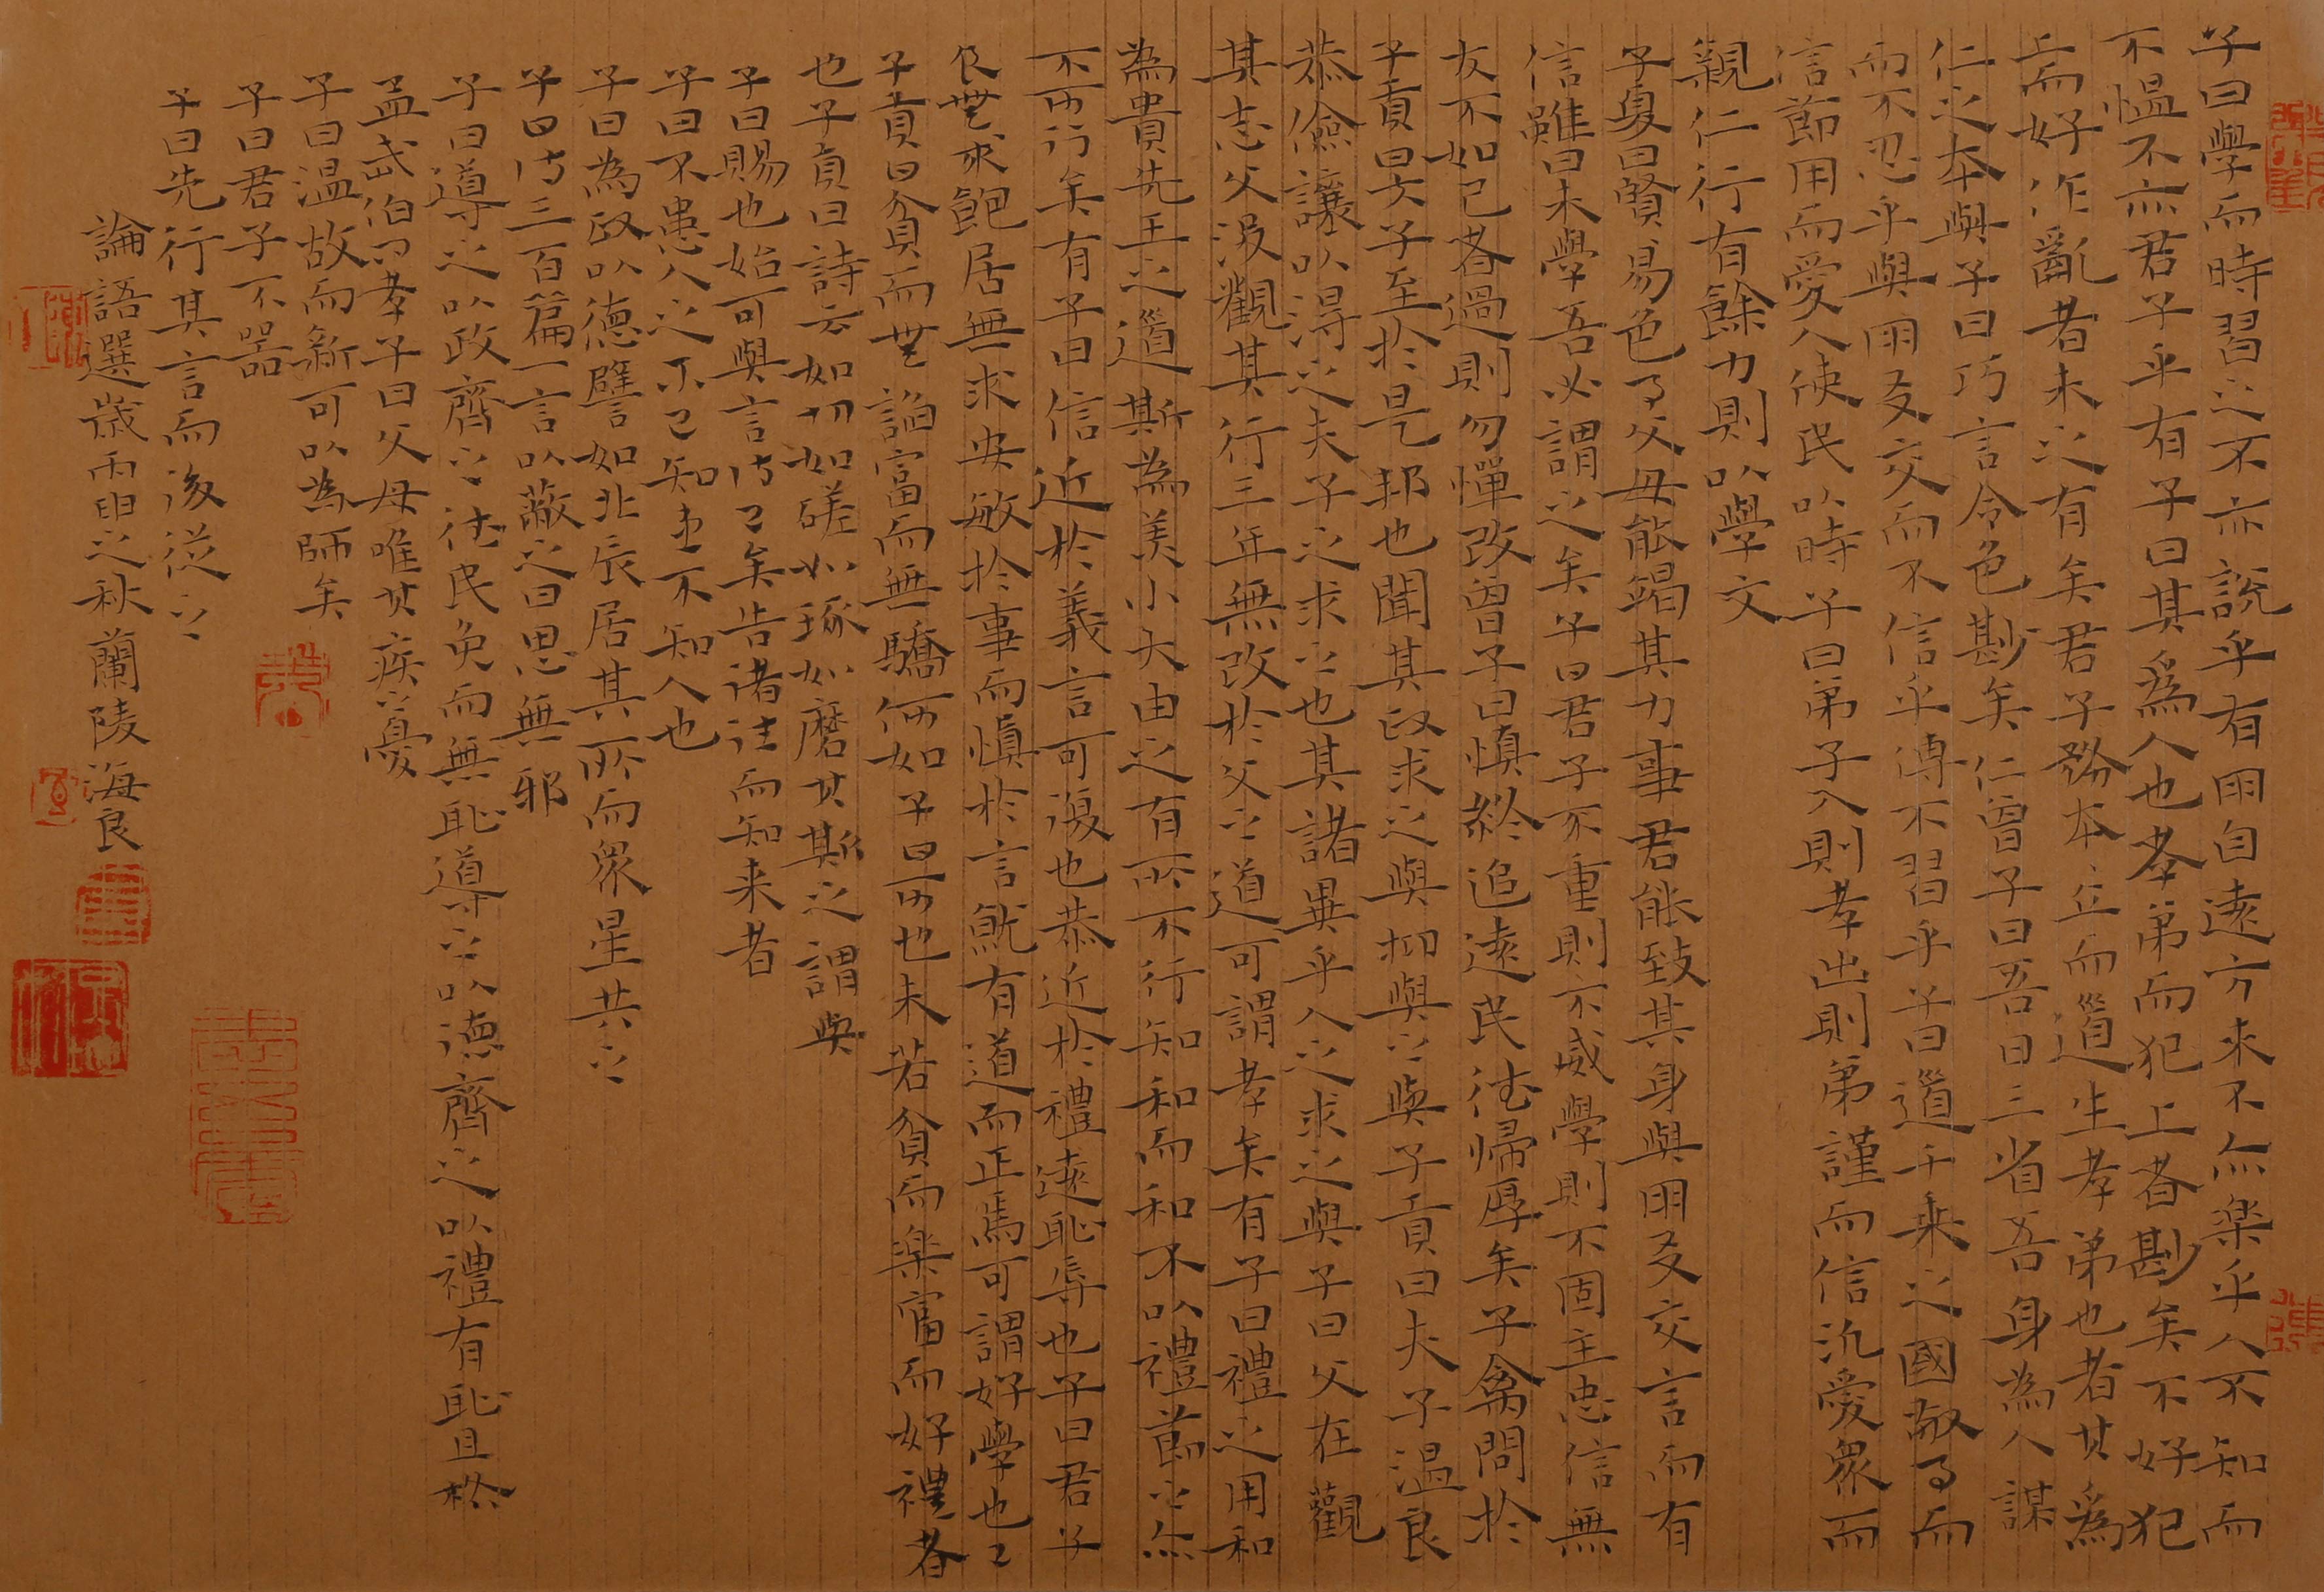 子曰學而時習之不亦說乎有朋自遠方來不亦樂乎人不知而
不愠不亦君子乎有子曰其爲人也孝弟而犯上者尠矣不好犯
上而好作亂者未之有矣君子務本本立而道生孝弟也者其爲
仁之本與子曰巧言令色尠矣仁曾子曰吾日三省吾身為人謀
而不忍乎與朋友交而不信乎傳不習乎子曰道千乘之國敬事而
信節用而愛人使民以時子曰弟子入則孝出則弟謹而信汎愛衆而
親仁行有餘力則以學文
子夏曰賢易色事父母能竭其力事君能致其身與朋友交言而有
信雖曰未學吾必謂之矣子曰君子不重則不威學則不固主忠信無
友不如己者過則勿憚改曾子曰慎終追遠民德歸厚矣子禽問於
子貢曰夫子至於是邦也聞其政求之與抑與之與子貢曰夫子温良
恭儉讓以得之夫子之求之也其諸異乎人之求之與子曰父在觀
其志父没觀其行三年無改於父之道可謂孝矣有子曰禮之用和
為貴先王之道斯為美小大由之有所不行知和而和不以禮節之亦
不可行矣有子曰信近於義言可復也恭近於禮遠恥辱也子曰君子
食無求飽居無求安敏於事而慎於言就有道而正焉可謂好學也已
子貢曰貧而無諂富而無驕何如子曰可也未若貧而樂富而好禮者
也子貢曰詩云如切如磋如琢如磨其斯之謂與
子曰賜也始可與言詩已矣告諸往而知来者
子曰不患人之不己知患不知人也
子曰為政以德譬如北辰居其所而衆星共之
子曰詩三百篇一言以蔽之曰思無邪
子曰導之以政齊之德民免而無恥導之以德齊之以禮有恥且格
孟武伯問孝子曰父母唯其疾之憂
子曰温故而新可以為師矣
子曰君子不器
子曰先行其言而後從之
論語選歲丙申之秋蘭陵海良